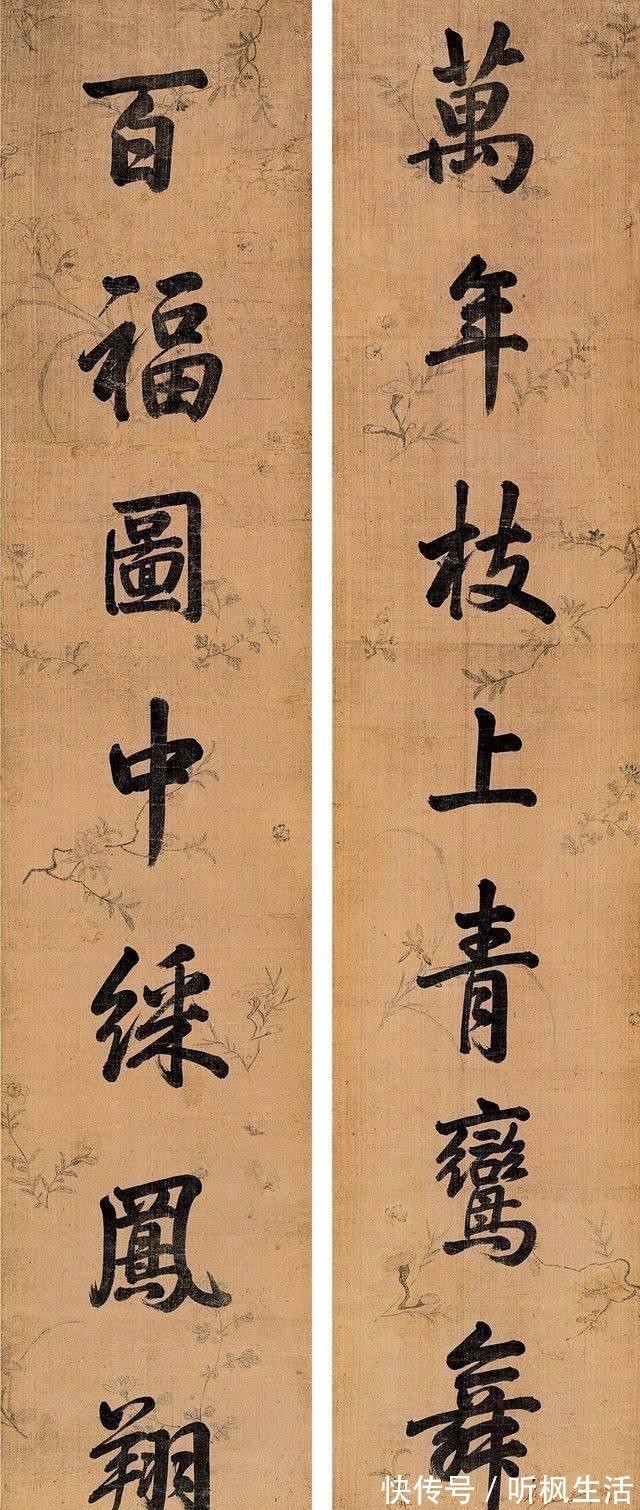 萬年枝上青鸞舞
百福圖中綵鳳翔
快传号／听枫生活